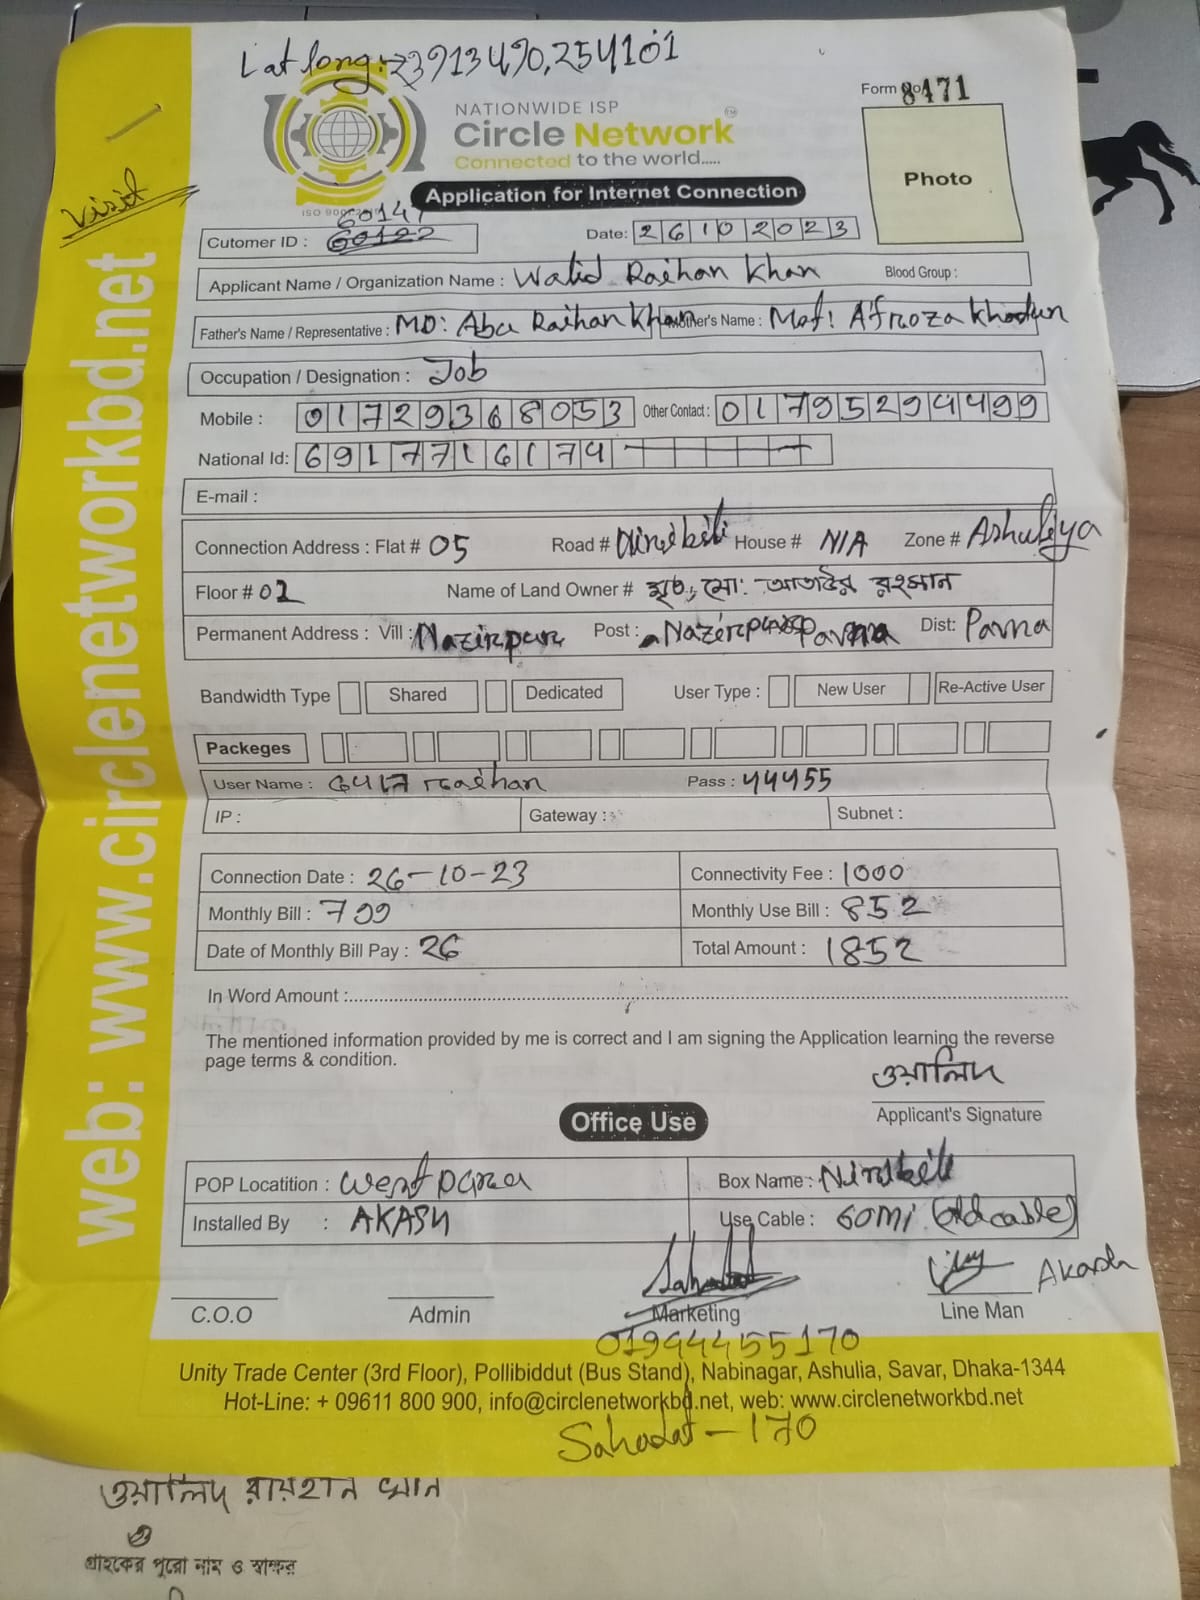 Lat long: 23913490,254101
Form No 8471
NATIONWIDE ISP
Circle Network
Connected to the world.....
Photo
Application for Internet Connection
Visit
ISO 900
60147
Cutomer ID : 60122
Date: 26102023
Applicant Name / Organization Name : Walid Raihan Khan Blood Group :
Father's Name / Representative : MD: Abu Raihan Khan Mother's Name : Mst: Afroza Khatun
Occupation / Designation : Job
Mobile : 01729368053 Other Contact : 01795294499
National Id: 6917716174
E-mail :
Connection Address : Flat # 05 Road # Nirsibili House # N/A Zone # Ashuliya
Floor # 02 Name of Land Owner # মৃত, মো: আতাউর রহমান
Permanent Address : Vill : Nazirpur Post : Nazirpur Pavna Dist: Pavna
Bandwidth Type Shared Dedicated User Type : New User Re-Active User
Packeges
User Name : raihan Pass : 44455
IP : Gateway : Subnet :
Connection Date : 26-10-23 Connectivity Fee : 1000
Monthly Bill : 799 Monthly Use Bill : 852
Date of Monthly Bill Pay : 26 Total Amount : 1852
In Word Amount :
The mentioned information provided by me is correct and I am signing the Application learning the reverse
page terms & condition.
ওয়ালিদ
Applicant's Signature
Office Use
POP Locatition : West para Box Name : Nirsibili
Installed By : AKASH Use Cable : 60Mi (old cable)
Sahadat Akash
C.O.O Admin Marketing Line Man
01944455170
Unity Trade Center (3rd Floor), Pollibiddut (Bus Stand), Nabinagar, Ashulia, Savar, Dhaka-1344
Hot-Line: + 09611 800 900, info@circlenetworkbd.net, web: www.circlenetworkbd.net
Sahadat - 170
web: www.circlenetworkbd.net
ওয়ালিদ রায়হান খান
গ্রাহকের পুরো নাম ও স্বাক্ষর